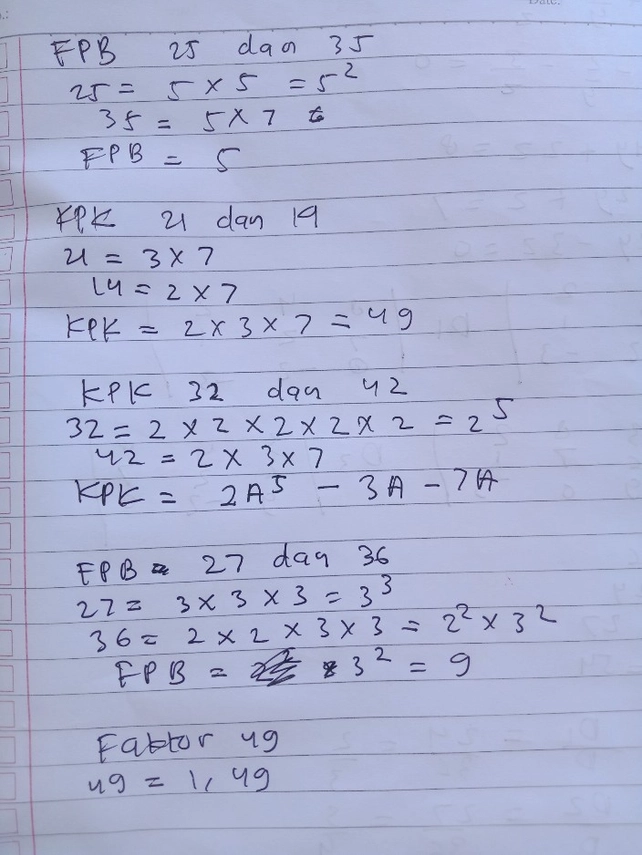 FPB 25 dan 35
25 = 5 × 5 = 5²
35 = 5 × 7
FPB = 5
KPK 21 dan 14
21 = 3 × 7
14 = 2 × 7
KPK = 2 × 3 × 7 = 49
KPK 32 dan 42
32 = 2 × 2 × 2 × 2 × 2 = 2⁵
42 = 2 × 3 × 7
KPK = 2A⁵ - 3A - 7A
FPB 27 dan 36
27 = 3 × 3 × 3 = 3³
36 = 2 × 2 × 3 × 3 = 2² × 3²
FPB = 3² = 9
Faktor 49
49 = 1, 49